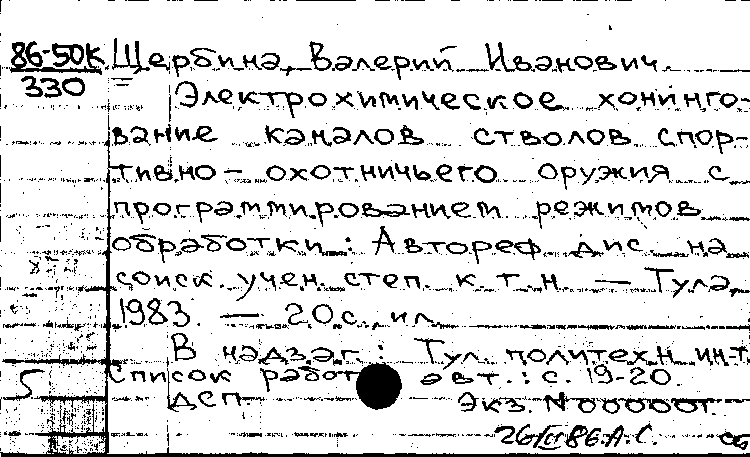 86-50К Щербина, Валерий Иванович.
330
Электрохимическое хонинго-
вание каналов стволов спор-
тивно-охотничьего оружия с
программированием режимов
обработки: Автореф. дис. на
соиск. учен. степ. к. т. н. — Тула,
1983. — 20 с., ил.
В надзаг.: Тул. политехн. ин-т.
5 Список работ авт.: с. 19-20.
ДСП Экз. N 000001.
86. А.С.